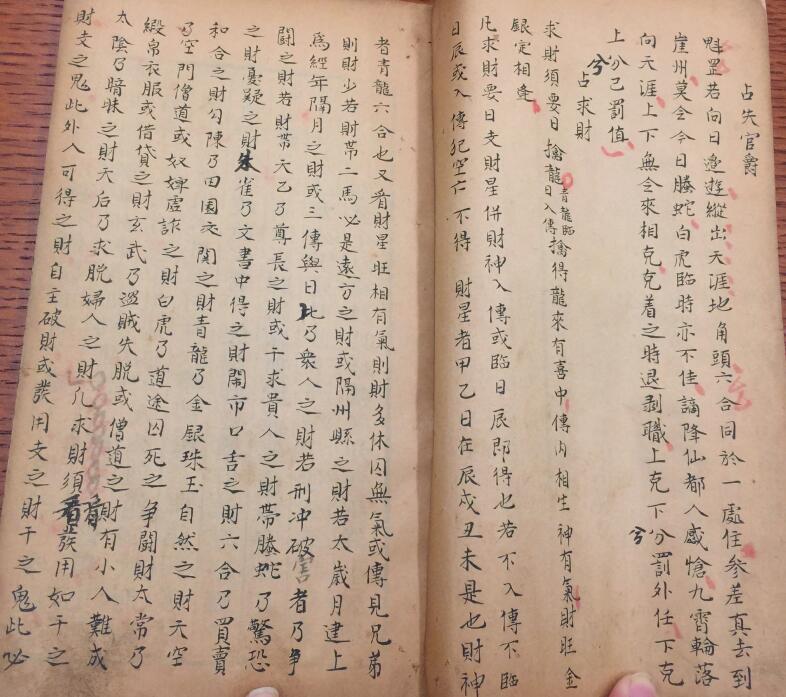 占失官爵
魁罡若向日邊遊縱出天涯地角頭六合同於一處住參差真去到
崖州莫令今日螣蛇白虎臨時亦不佳謫降仙都人感愴九霄輪落
向天涯上下無令來相克克着之時退剥職上克下兮罰外任下克
上兮己罰值
占求財
求財須要日擒龍青龍臨日入傳擒得龍來有喜中傳內相生神有氣財旺金
銀定相逢
凡求財要日支財星併財神入傳或臨日辰即得也若不入傳不臨
日辰或入傳犯空亡不得 財星者甲乙日在辰戌丑未是也財神
者青龍六合也又看財星旺相有氣則財多休囚無氣或傳見兄弟
則財少若財帶二馬必是遠方之財或隔州縣之財若太歲月建上
為經年隔月之財或三傳與日比乃衆人之財若刑冲破害者乃爭
鬪之財若財帶天乙乃尊長之財或干求貴人之財帶螣蛇乃驚恐
之財憂疑之財朱雀乃文書中得之財鬧市口舌之財六合乃買賣
和合之財勾陳乃田園交関之財青龍乃金銀珠玉自然之財天空
乃空門僧道或奴婢虛詐之財白虎乃道途囚死之爭鬪財太常乃
緞帛衣服或借貸之財玄武乃盗賊失脱或僧道之財有小人難成
太陰乃暗昧之財天后乃求脱婦人之財凡求財須看發用如干之
財支之鬼此外人可得之財自主破財或發用支之財干之鬼此必